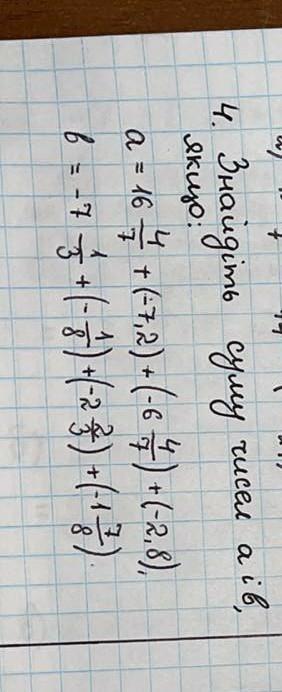 4. Знайдіть суму чисел а і в,
якщо:
a = 16 4/7 + (-7,2) + (-6 4/7) + (-2,8),
b = -7 1/3 + (-1/8) + (-2 2/3) + (-1 7/8).